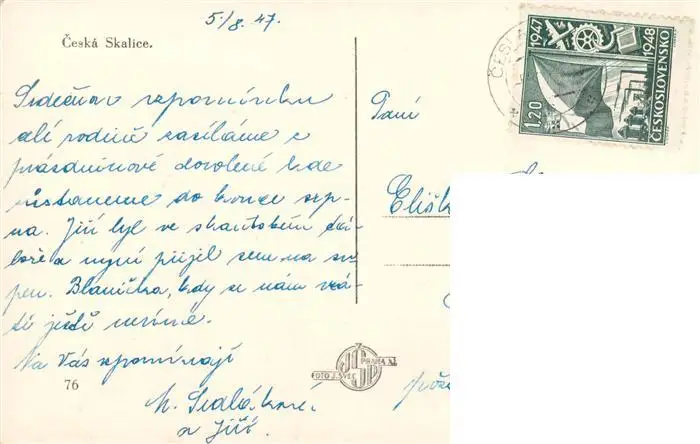 5./8. 47.
Česká Skalice.
Srdečnou vzpomínku
celé rodině zasíláme z
prázdninové dovolené kde
zůstaneme do konce srp-
na. Jiří byl ve skautském tá-
boře a nyní přijel sem na sr-
pen. Blanička, kdy se nám vrá-
tí ještě nevíme.
Na Vás vzpomínají
M. Sedláková
a Jiří.
76
Paní
Elišk
FOTO J. ŠVEC
PRAHA XI.
1947
1948
ČESKOSLOVENSKO
1.20
ČESK